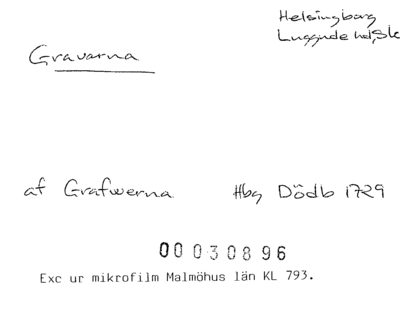 Helsingborg
Luggude hd, Sk
Gravarna
af Grafwerna Hbg Dödb 1729
00030896
Exc ur mikrofilm Malmöhus län KL 793.